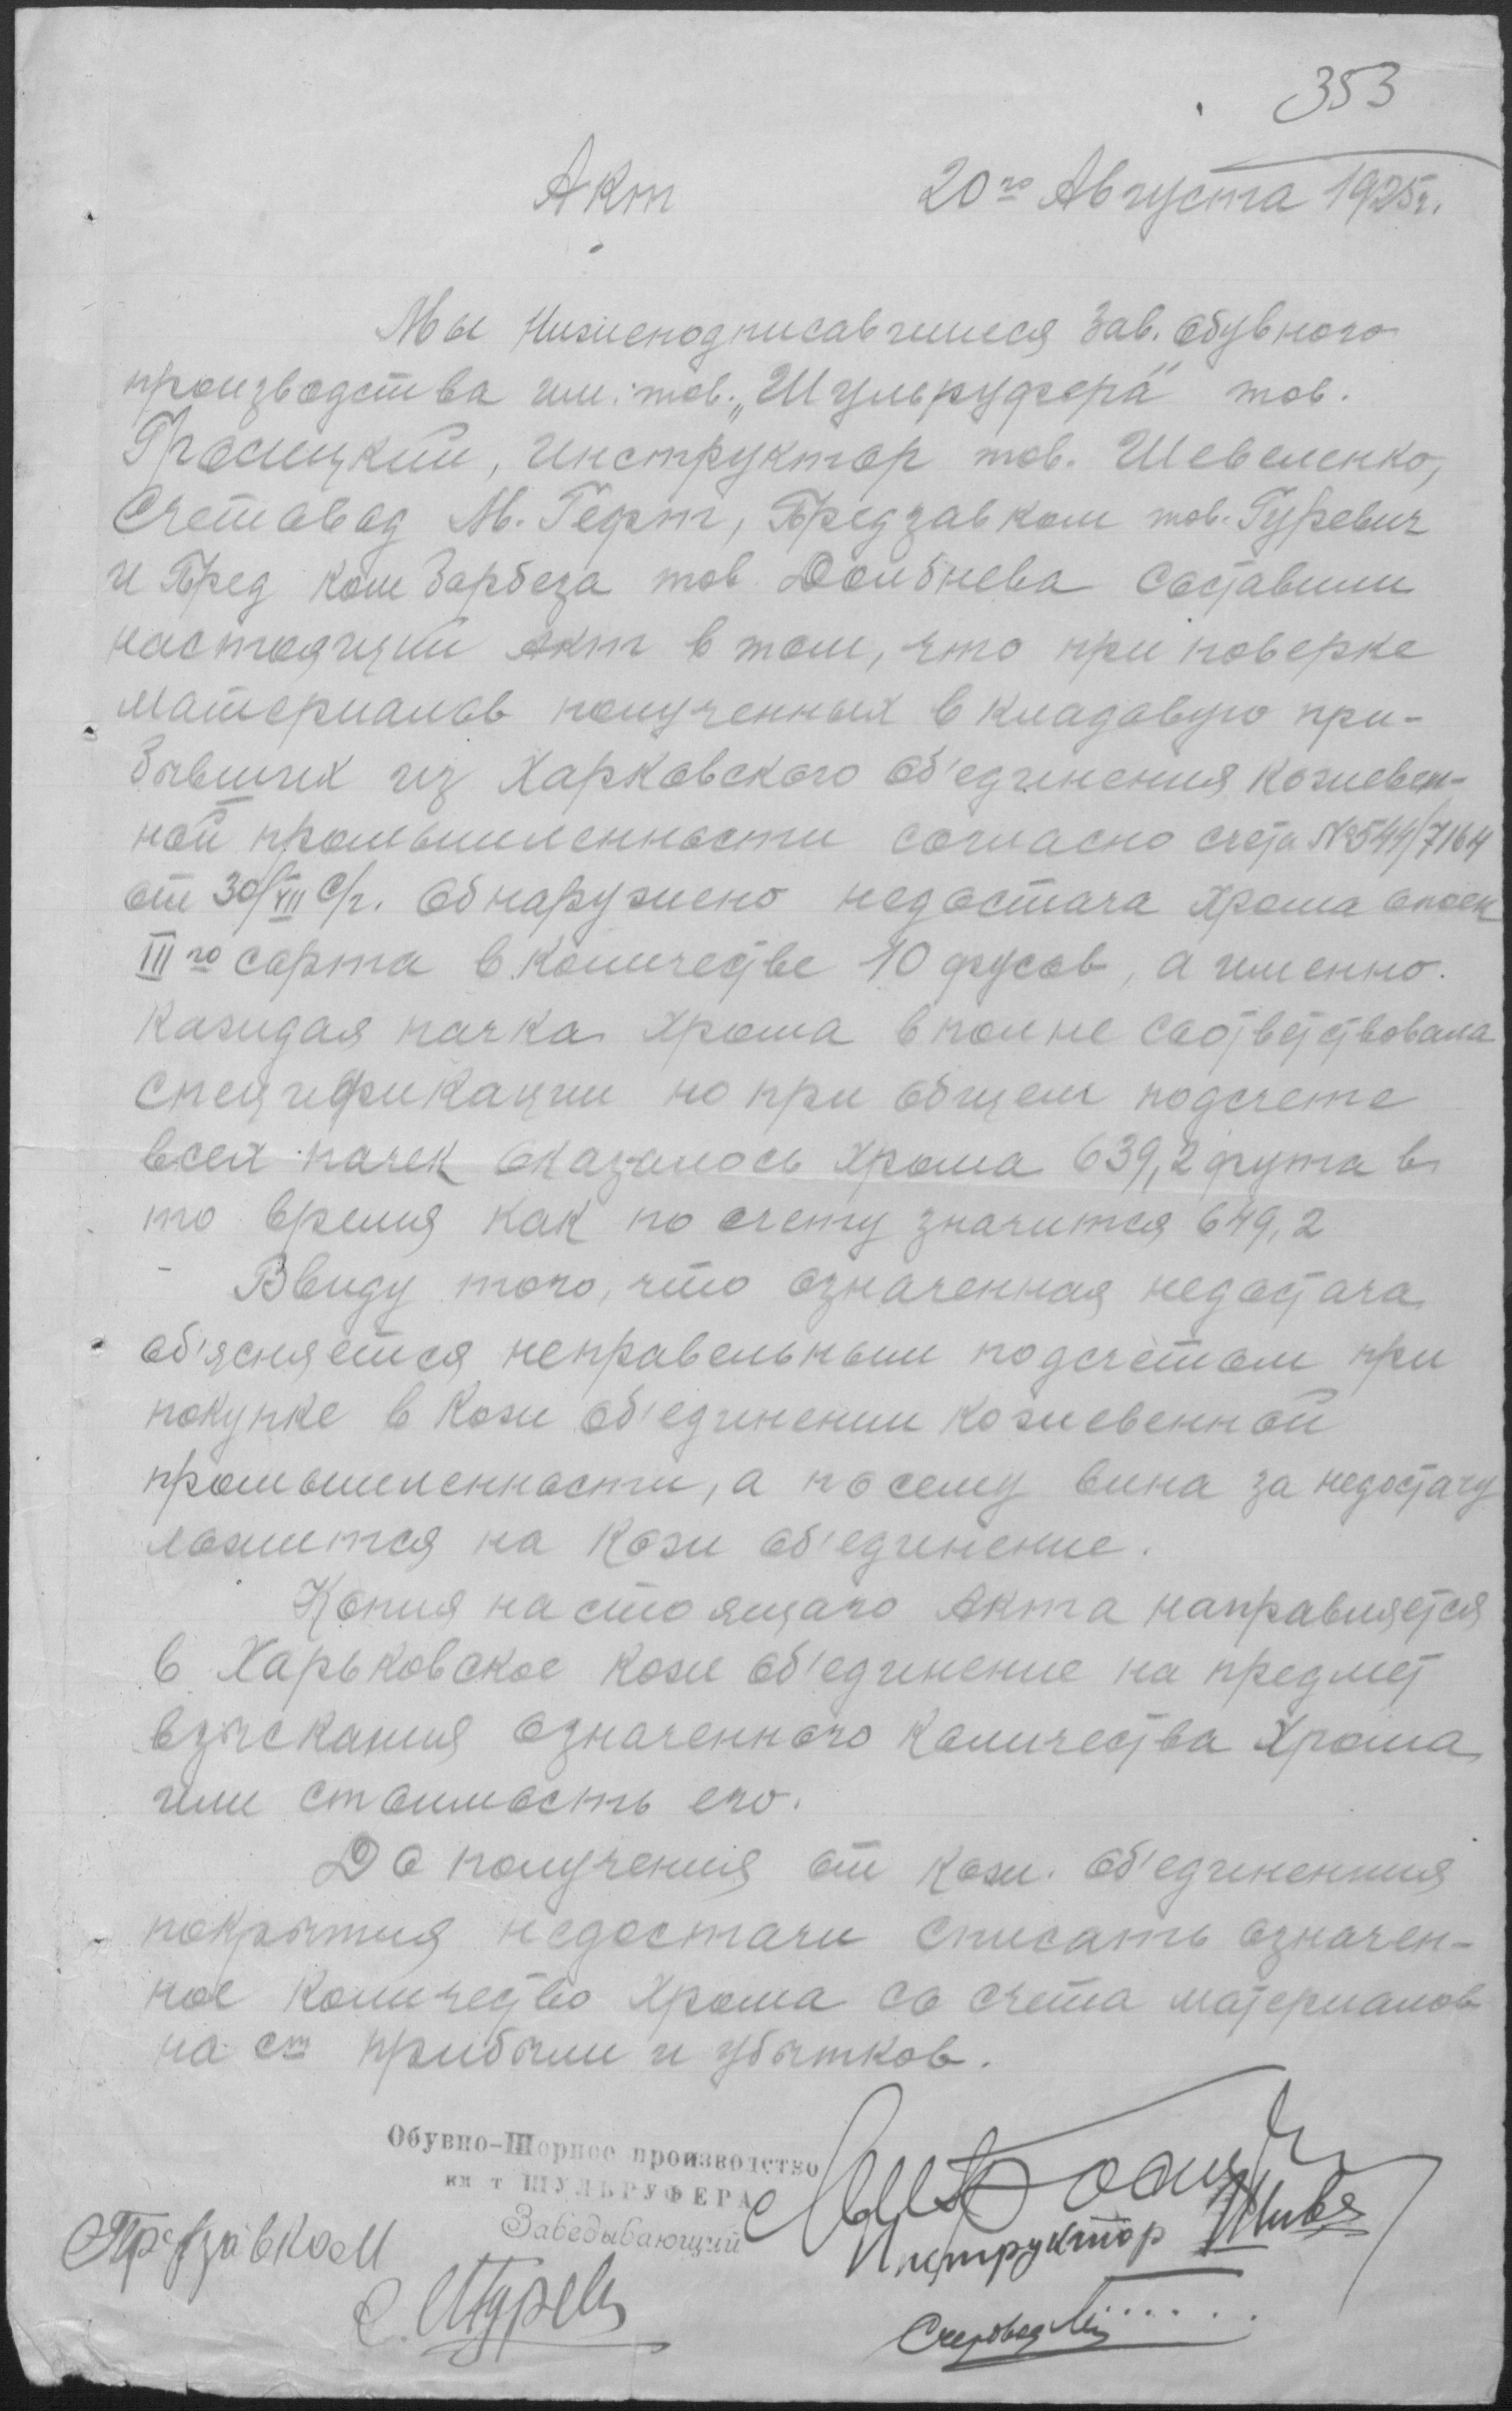 353
Акт 20го Августа 1925г.
Мы нижеподписавшиеся Зав. обувного
производства им. тов. „Шульруфера" тов.
инструктор тов. Шевеленко,
Счетовод М. Герт, Предзавком тов. Гуревич
и Пред ком Борбеза тов. Долбнева составили
настоящий акт в том, что при поверке
материалов полученных в кладовую при-
бывших из Харковского об'единения кожевен-
ной промышленности согласно счета №544/7164
от 30/VII с/г. обнаружено недостача хрома опоек
III го сорта в количестве 10 фусов, а именно.
каждая пачка хрома вполне соответствовала
спецификации но при общем подсчете
всех пачек оказалось хрома 639,2 фута в
то время как по счету значится 649,2
Ввиду того, что означенная недостача
об'ясняется неправельным подсчетом при
покупке в Кож об'единении кожевенной
промышленности, а посему вина за недостачу
ложится на Кож об'единение.
Копия настоящаго Акта направляется
в Харьковское кож об'единение на предмет
взыскания означенного количества Хрома
или стоимость его.
До получения от кож. об'единенния
покрытия недостачи списать означен-
ное количество Хрома со счета материалов
на ст прибыли и убытков.
Обувно-Шорное производство
им т ШУЛЬРУФЕРА
Заведывающий
Инструктор
Предзавком
Счетовод